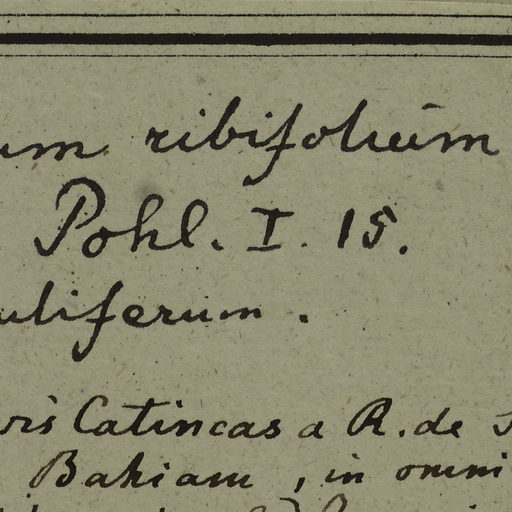 um ribifolium
Pohl. I. 15.
uliferum.
ris Catincas a R. de
Bahiam, in omni